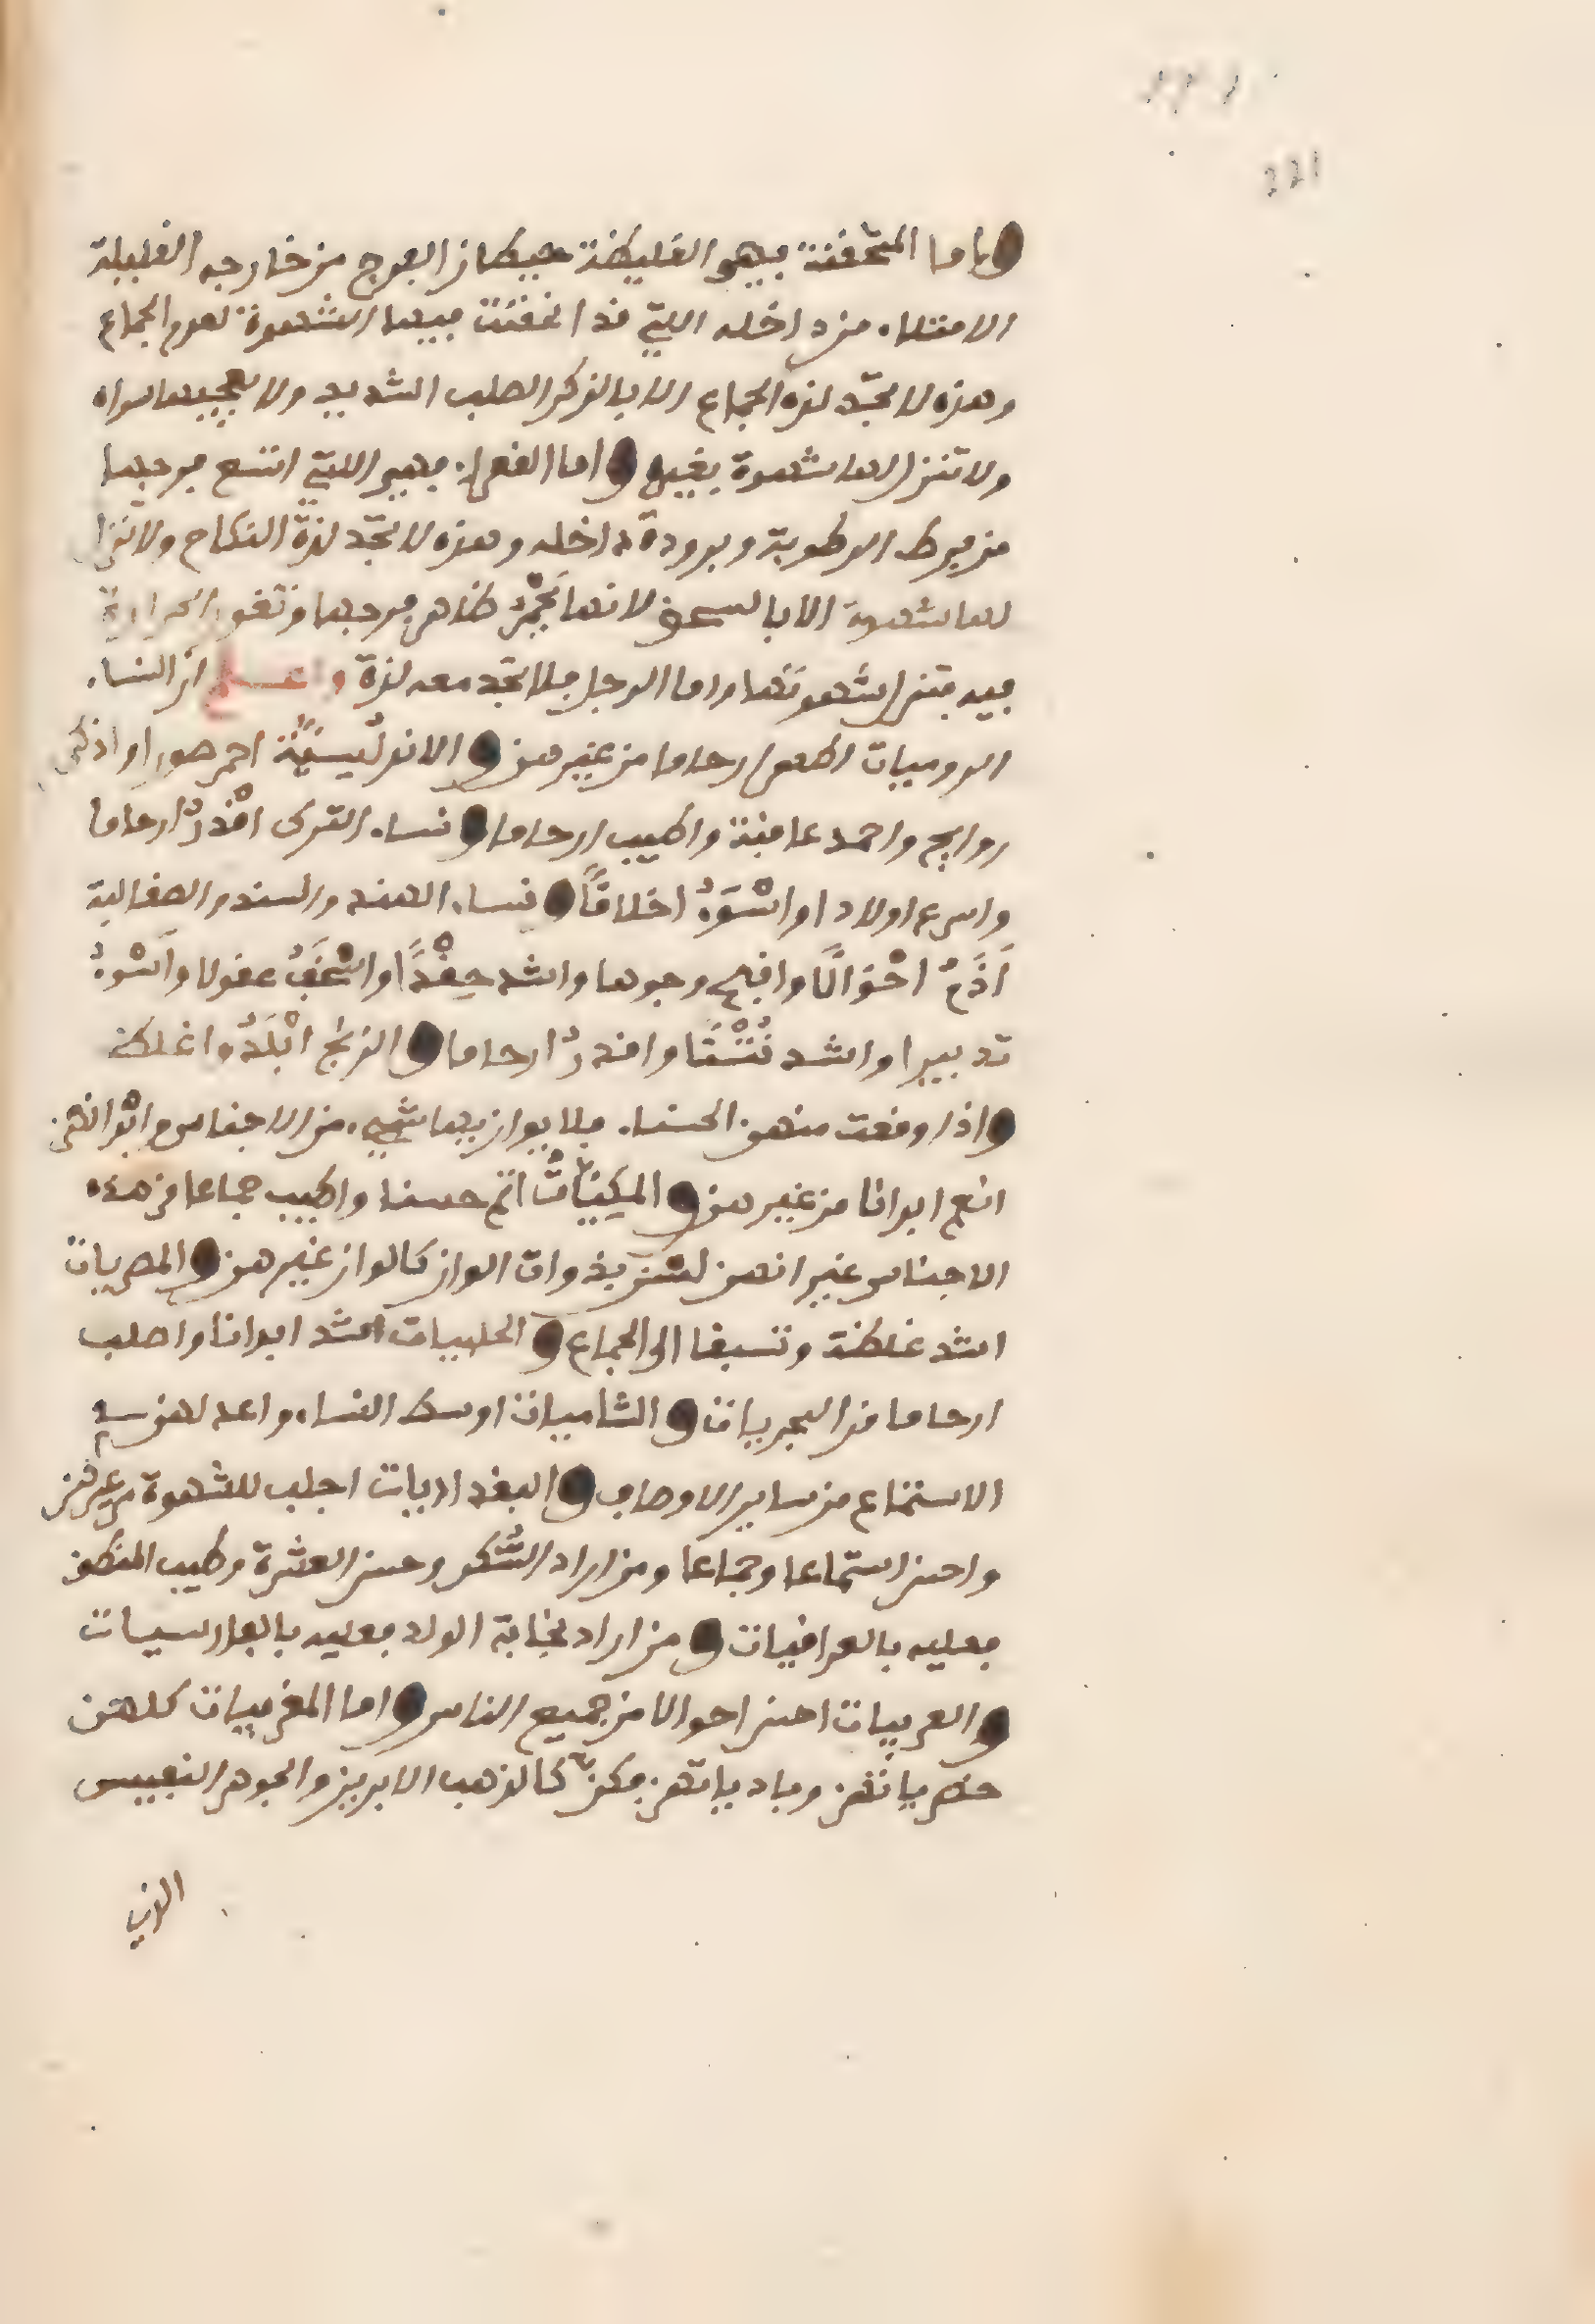 221
واما المتحفنة فهي الغليظة حيطان الفرج من خارجه القليلة
الامتلاء من داخله التي قد انحقنت فيها الشهوة لعدم الجماع
وهذه لا تجد لذة الجماع الا بالذكر الصلب الشديد ولا يعجبها سواه
ولا تنزل لها شهوة بغيره واما القعرا فهي التي اتسع فرجها
من فرط الرطوبة وبرودة داخله وهذه لا تجد لذة النكاح ولا تنزل
لها شهوة الا بالسحق لانها تجمر ظاهر فرجها وتغور الحرارة
فيه فتنزل شهوتها واما الرجل فلا تجد معه لذة واعلم ان النساء
الروميات اطهر ارحاما من غيرهن والاندلسيّة احمر صورا واذكى
روايح واحمد عاقبة واطيب ارحاما ونساء الترك اقْذرُ ارحاما
واسرع اولادا واسْوَءُ اخلاقًا ونساء الهند والسند والصقالبة
اَذَمُّ احْوَالًا واقبح وجوها واشد حِقْدًا واسْخَفُ عقولا واَسْوءُ
تدبيرا واشد نُتْنًا واقذرُ ارحاما والزنج ابْلَدُ واغلظ
واذا وقعت منهن الحسنا فلا يوازيها شيء من الاجناس وابْدانهن
انعم ابدانا من غيرهن والمكيّاتُ اتم حسنا واطيب جماعا من هذه
الاجناس غير انهن لسن بذوات الوان كالوان غيرهن والمصريات
اشد غلظة وتسبقا الى الجماع والحلبيات اشد ابدانا واصلب
ارحاما من البحريات والشاميات اوسط النساء واعدلهن في
الاستمتاع من ساير الاوصاف والبغداديات اجلب للشهوة من غيرهن
واحسن استمتاعا وجماعا ومن اراد الشُّكر وحسن العشرة وطيب المنطق
فعليه بالعراقيات ومن اراد نجابة الولد فعليه بالفارسيات
والعربيات احسن احوالا من جميع الناس واما المغربيات كلهن
حضرياتهن وبادياتهن فكنّ كالذهب الابريز والجوهر النفيس